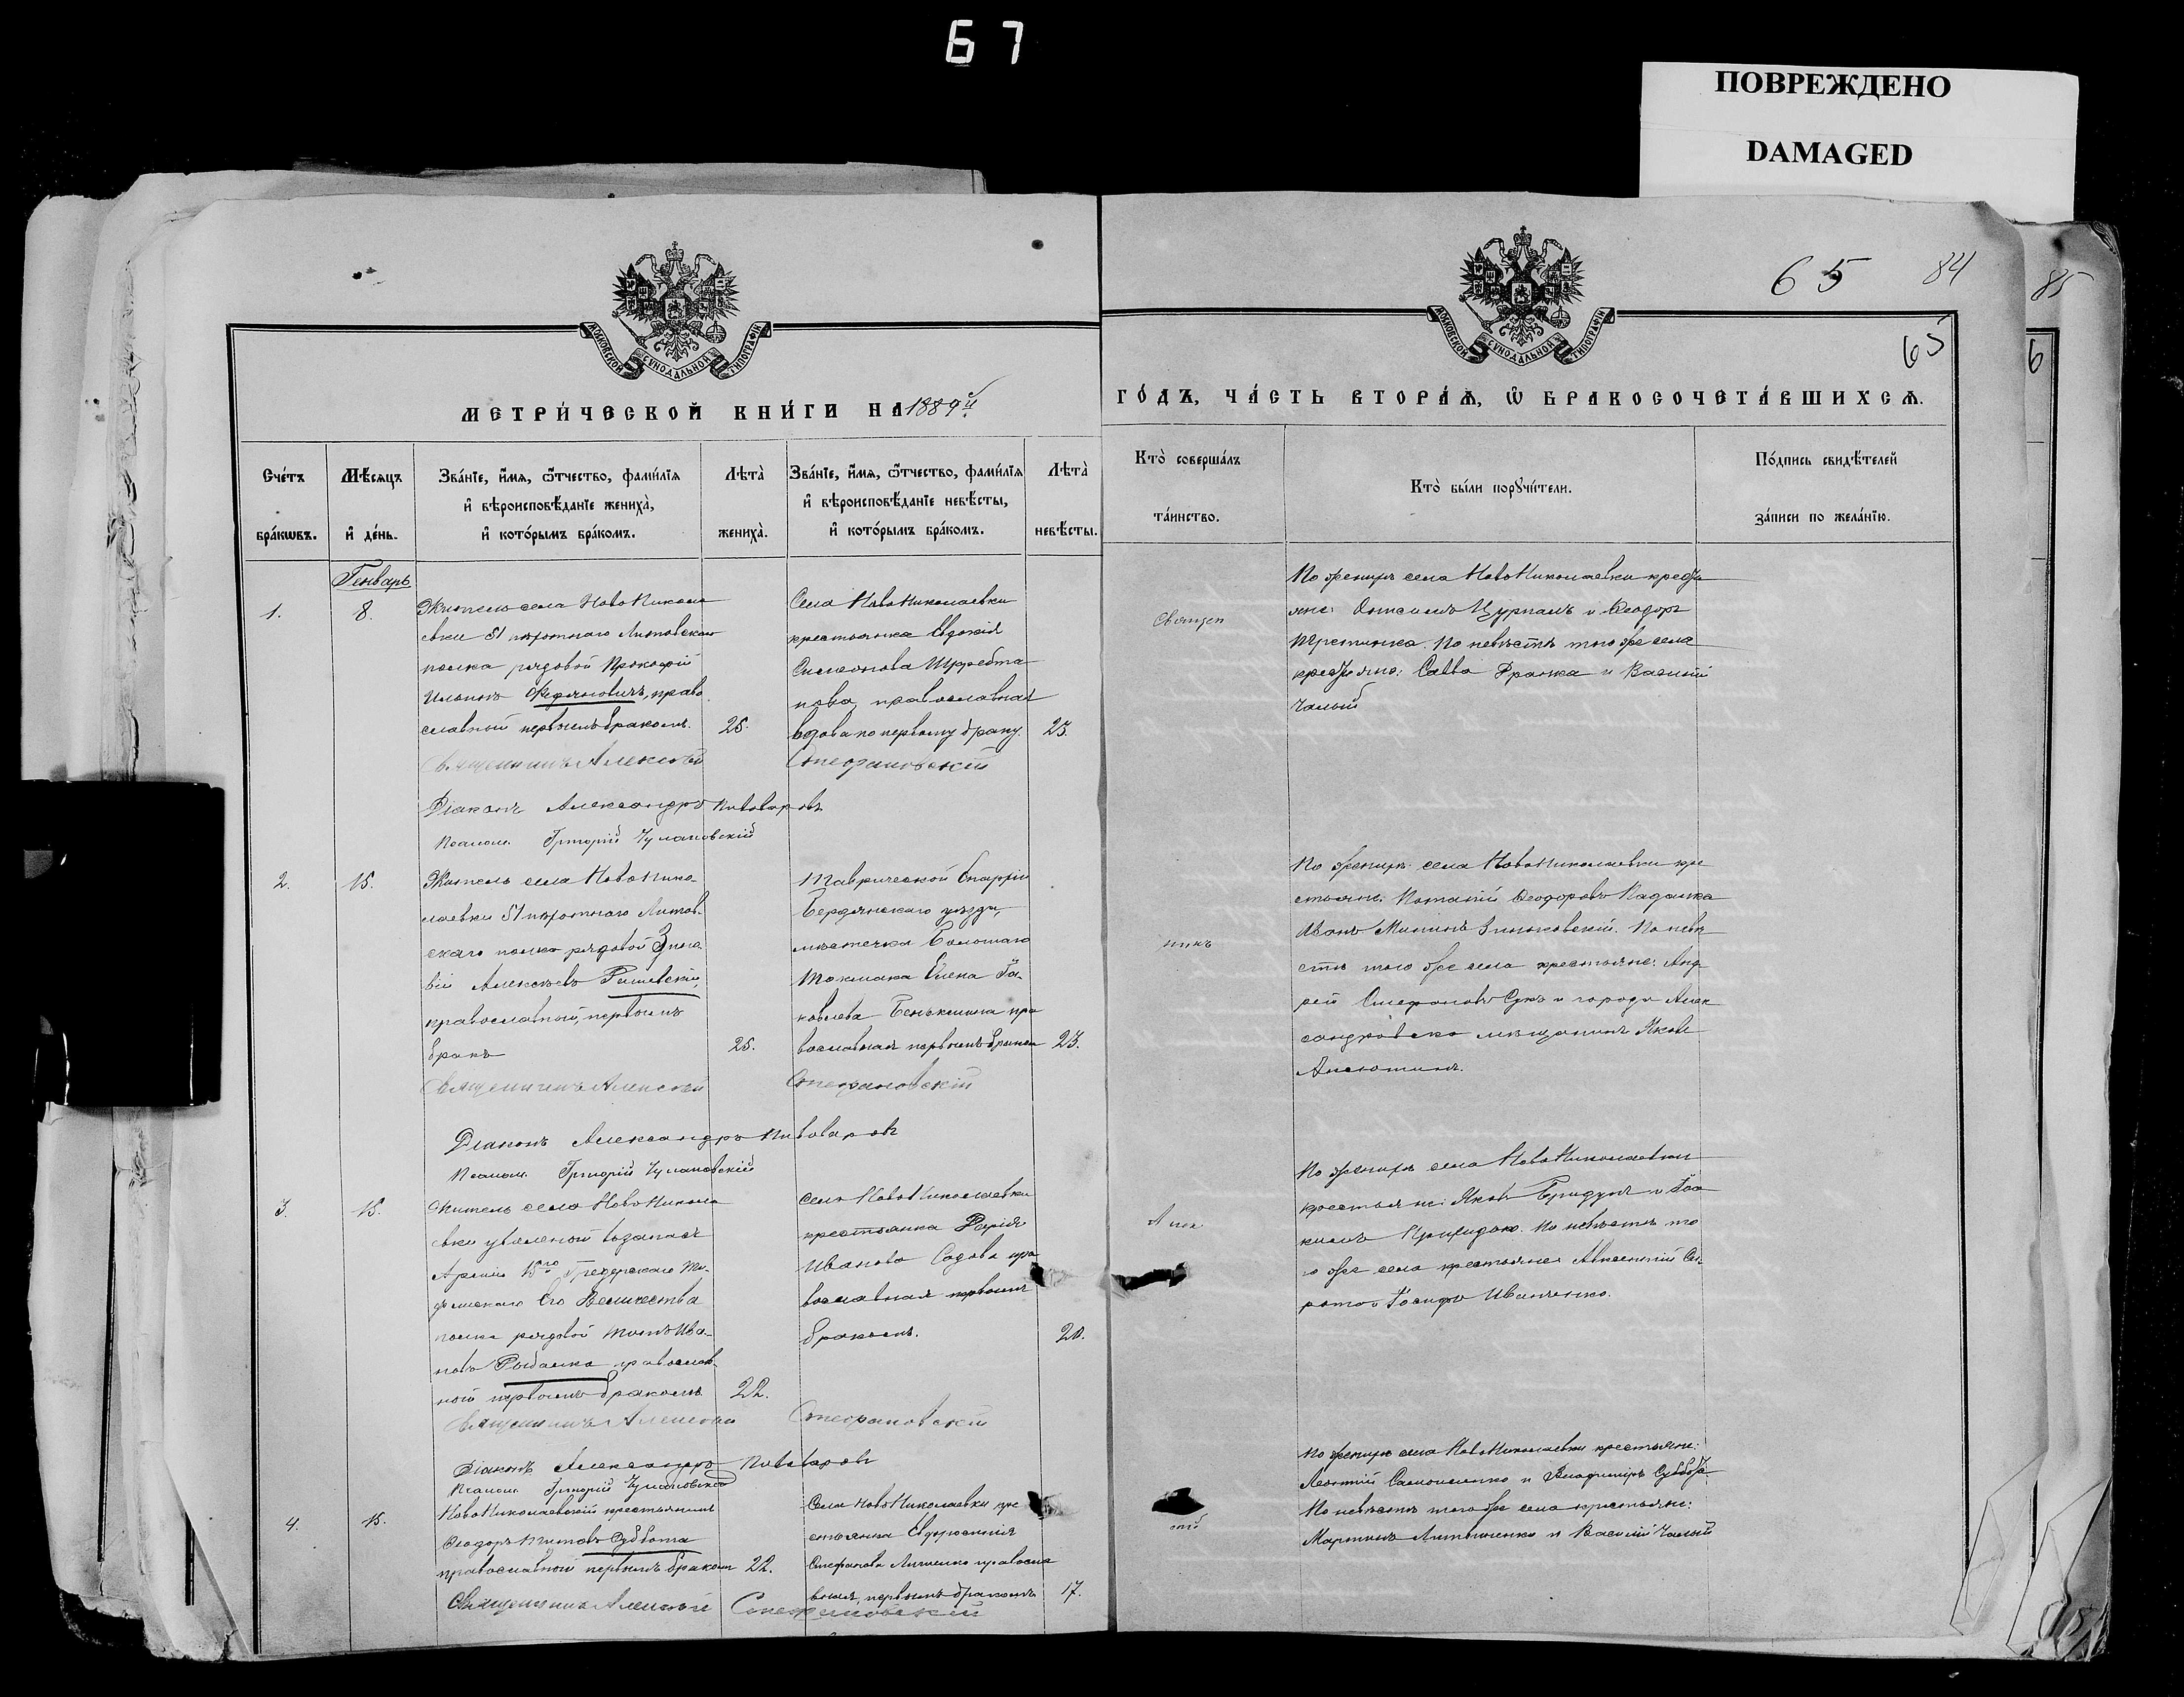 67
ПОВРЕЖДЕНО
DAMAGED
65 84
85
65
6
МОСКОВСКОЙ СѴНОДАЛЬНОЙ ТИПОГРАФІИ
МОСКОВСКОЙ СѴНОДАЛЬНОЙ ТИПОГРАФІИ
МЕТРИ́ЧЕСКОЙ КНИ́ГИ НА 1889й
ГО́ДЪ, ЧА́СТЬ ВТОРА́Ѧ, Ѿ БРАКОСОЧЕТА́ВШИХСѦ.
Сче́тъ бра́кѡвъ.
Мѣ́сяцъ и҆ де́нь.
Зва́нїе, и҆́мѧ, ѻ҆́тчество, фами́лїѧ и҆ вѣроисповѣ́данїе жениха̀, и҆ кото́рымъ бра́комъ.
Лѣта̀ жениха̀.
Зва́нїе, и҆́мѧ, ѻ҆́тчество, фами́лїѧ и҆ вѣроисповѣ́данїе невѣ́сты, и҆ кото́рымъ бра́комъ.
Лѣта̀ невѣ́сты.
Кто̀ соверша́лъ та́инство.
Кто̀ бы́ли порꙋчи́тели.
По́дпись свидѣ́телей за́писи по жела́нїю.
Генварь
1.
8.
Житель села НовоНикола
евки 51 пѣхотнаго Литовскаго
полка рядовой Прокофій
Ильинъ Федяновичъ, право
славный первымъ бракомъ.
25.
Села НовоНиколаевки
крестьянка Евдокія
Симеонова
нова, православная
вдова по первому браку.
23.
Священ
По женихѣ села НовоНиколаевки кресть
яне: Цурпалъ и Ѳеодоръ
По невѣстѣ того же села
крестьяне: Савва Дранка и Василій
Чалый
Священникъ Алексѣй Стефановскій
Діаконъ Александръ Пивоваровъ
Псалом. Григорій Чулановскій
2.
15.
Житель села НовоНико-
лаевки 51 пѣхотнаго Литов-
скаго полка рядовой Зино
вій Алексѣевъ
православный, первымъ
бракъ
25.
Таврической Епархіи
Бердянскаго уѣзда,
мѣстечка Большаго
Токмака Елена Іа-
ковлева пра
вославная первымъ бракомъ
23.
никъ
По женихѣ: села НовоНиколаевки кре
стьяне: Потапій Ѳеодоровъ Падалка
Иванъ Мининъ Зинковскій. По невѣ
стѣ того же села крестьяне: Анд
рей Стефановъ Сукъ и города Алек
сандровска мѣщанинъ Яковъ
Анютинъ.
Священникъ Алексѣй Стефановскій
Діаконъ Александръ Пивоваровъ
Псалом. Григорій Чулановскій
3.
15.
Житель села НовоНикола
евки уволеной въ запасъ
Арміи 15го Гредерскаго Ти-
флискаго Его Величества
полка рядовой Ива-
новъ Рыбалка православ-
ной первымъ бракомъ
22.
Села НовоНиколаевки
крестьянка Дарія
Иванова Садова пра
вославная первымъ
бракомъ.
20.
Алек
По женихѣ села НовоНиколаевки
крестьяне: Яковъ и Іоа
кимъ Прихидько. По невѣстѣ то
го же села крестьяне: Авксентій Си
рота и Іосифъ Иванченко.
Священникъ Алексѣй Стефановскій
Діаконъ Александръ Пивоваровъ
Псалом. Григорій Чулановскій
4.
15.
НовоНиколаевскій крестьянинъ
Ѳеодоръ Титовъ Суббота
православный первымъ бракомъ
22.
Села НовоНиколаевки кре
стьянка Евфросинія
Стефанова православ
вная, первымъ бракомъ
17.
По женихѣ села НовоНиколаевки крестьяне:
Леонтій Самойленко и Владиміръ Суббота
По невѣстѣ того же села крестьяне:
Мартинъ Литвиненко и Василій Чалый
Священникъ Алексѣй Стефановскій